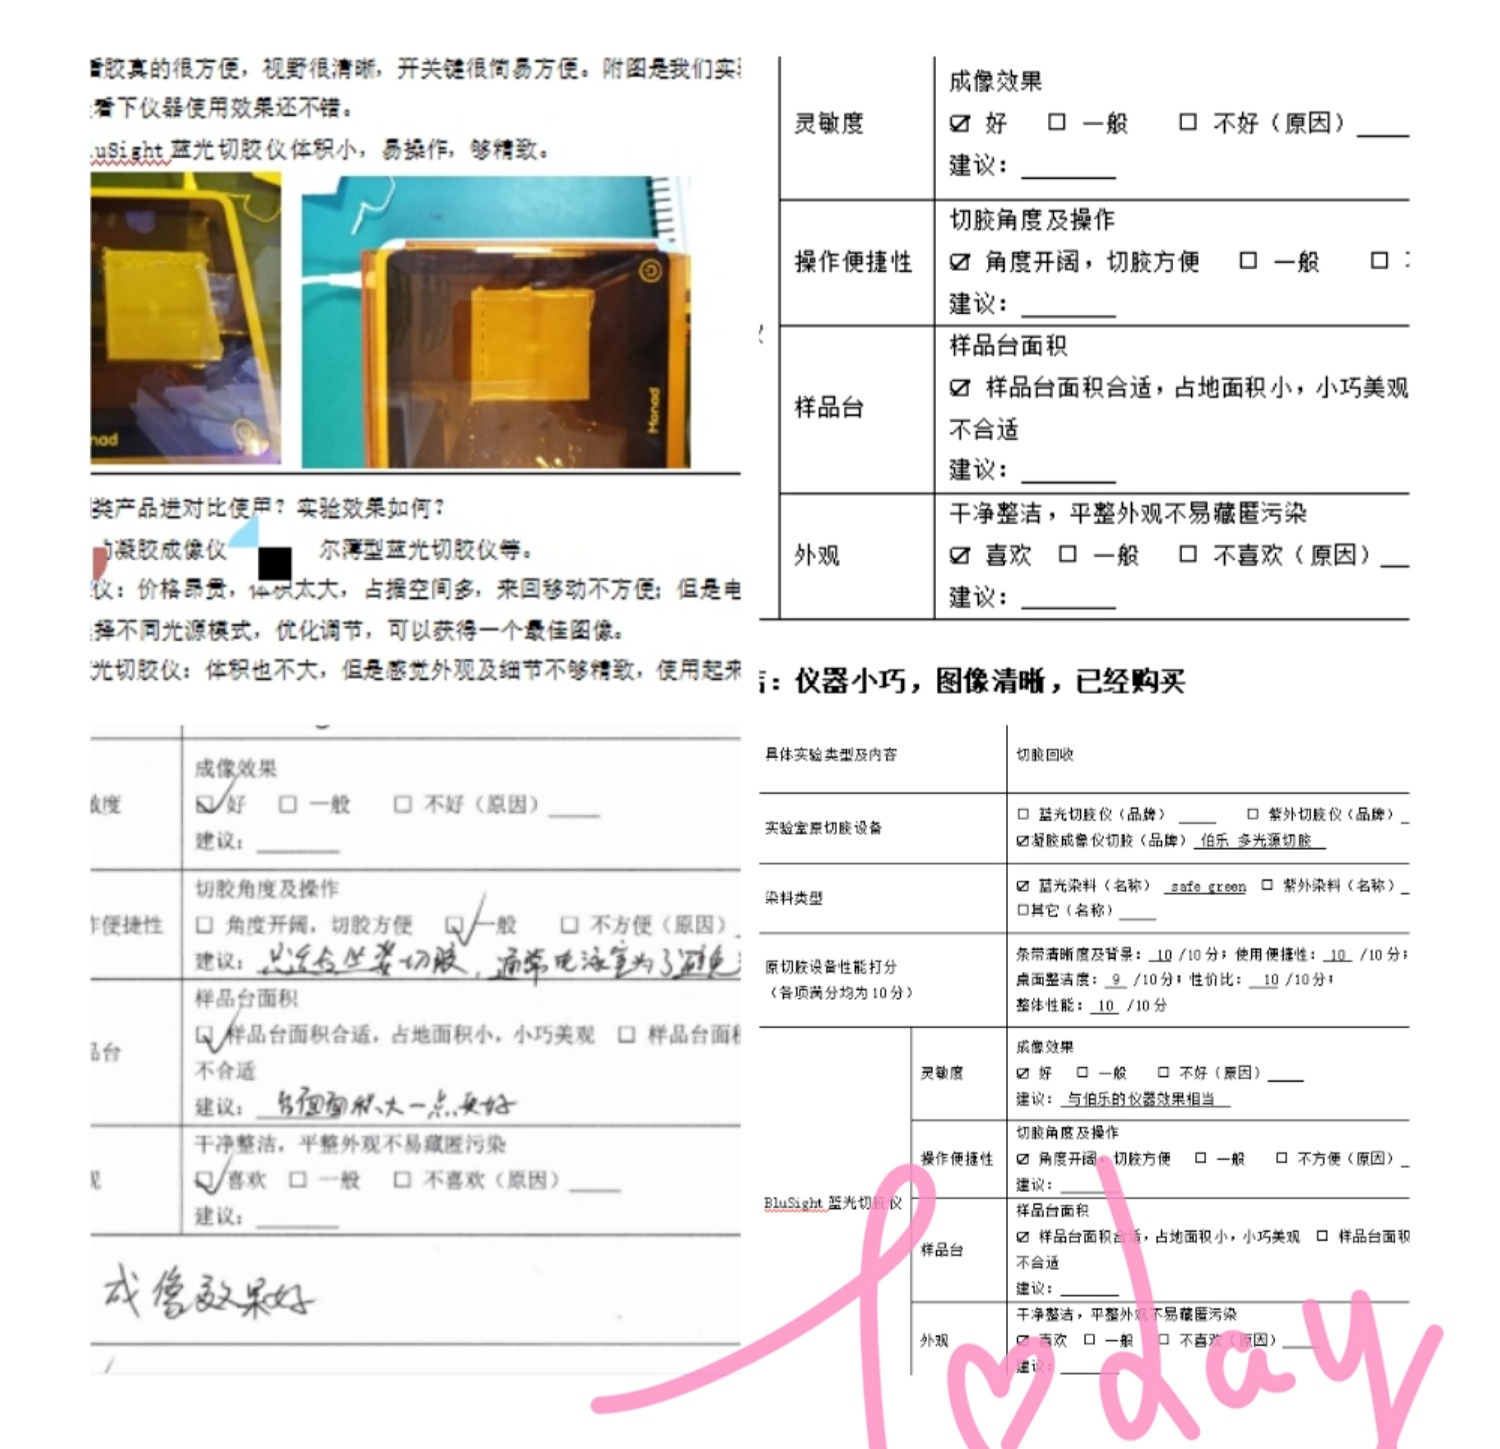 看胶真的很方便，视野很清晰，开关键很简易方便。附图是我们实
看下仪器使用效果还不错。
luSight 蓝光切胶仪体积小，易操作，够精致。
Monad
类产品进对比使用？实验效果如何？
凝胶成像仪 尔薄型蓝光切胶仪等。
仪：价格昂贵，体积太大，占据空间多，来回移动不方便；但是电
择不同光源模式，优化调节，可以获得一个最佳图像。
光切胶仪：体积也不大，但是感觉外观及细节不够精致，使用起来
灵敏度
成像效果
☑ 好 □ 一般 □ 不好（原因）____
建议：____
操作便捷性
切胶角度及操作
☑ 角度开阔，切胶方便 □ 一般 □
建议：____
样品台
样品台面积
☑ 样品台面积合适，占地面积小，小巧美观
不合适
建议：____
外观
干净整洁，平整外观不易藏匿污染
☑ 喜欢 □ 一般 □ 不喜欢（原因）____
建议：____
：仪器小巧，图像清晰，已经购买
敏度
成像效果
☑ 好 □ 一般 □ 不好（原因）____
建议：____
作便捷性
切胶角度及操作
□ 角度开阔，切胶方便 ☑ 一般 □ 不方便（原因）
建议：只适合坐姿切胶，通常电泳室为了避免
品台
样品台面积
☑ 样品台面积合适，占地面积小，小巧美观 □ 样品台面积
不合适
建议：台面面积大一点更好
观
干净整洁，平整外观不易藏匿污染
☑ 喜欢 □ 一般 □ 不喜欢（原因）____
建议：____
成像效果好
具体实验类型及内容
切胶回收
实验室原切胶设备
□ 蓝光切胶仪（品牌）____ □ 紫外切胶仪（品牌）
☑凝胶成像仪切胶（品牌） 伯乐 多光源切胶
染料类型
☑ 蓝光染料（名称） safe green □ 紫外染料（名称）
□其它（名称）____
原切胶设备性能打分
（各项满分均为10分）
条带清晰度及背景： 10 /10分；使用便捷性： 10 /10分；
桌面整洁度： 9 /10分；性价比： 10 /10分；
整体性能： 10 /10分
BluSight 蓝光切胶仪
灵敏度
成像效果
☑ 好 □ 一般 □ 不好（原因）____
建议： 与伯乐的仪器效果相当
操作便捷性
切胶角度及操作
☑ 角度开阔，切胶方便 □ 一般 □ 不方便（原因）
建议：____
样品台
样品台面积
☑ 样品台面积合适，占地面积小，小巧美观 □ 样品台面积
不合适
建议：____
外观
干净整洁，平整外观不易藏匿污染
☑ 喜欢 □ 一般 □ 不喜欢（原因）____
建议：____
Today